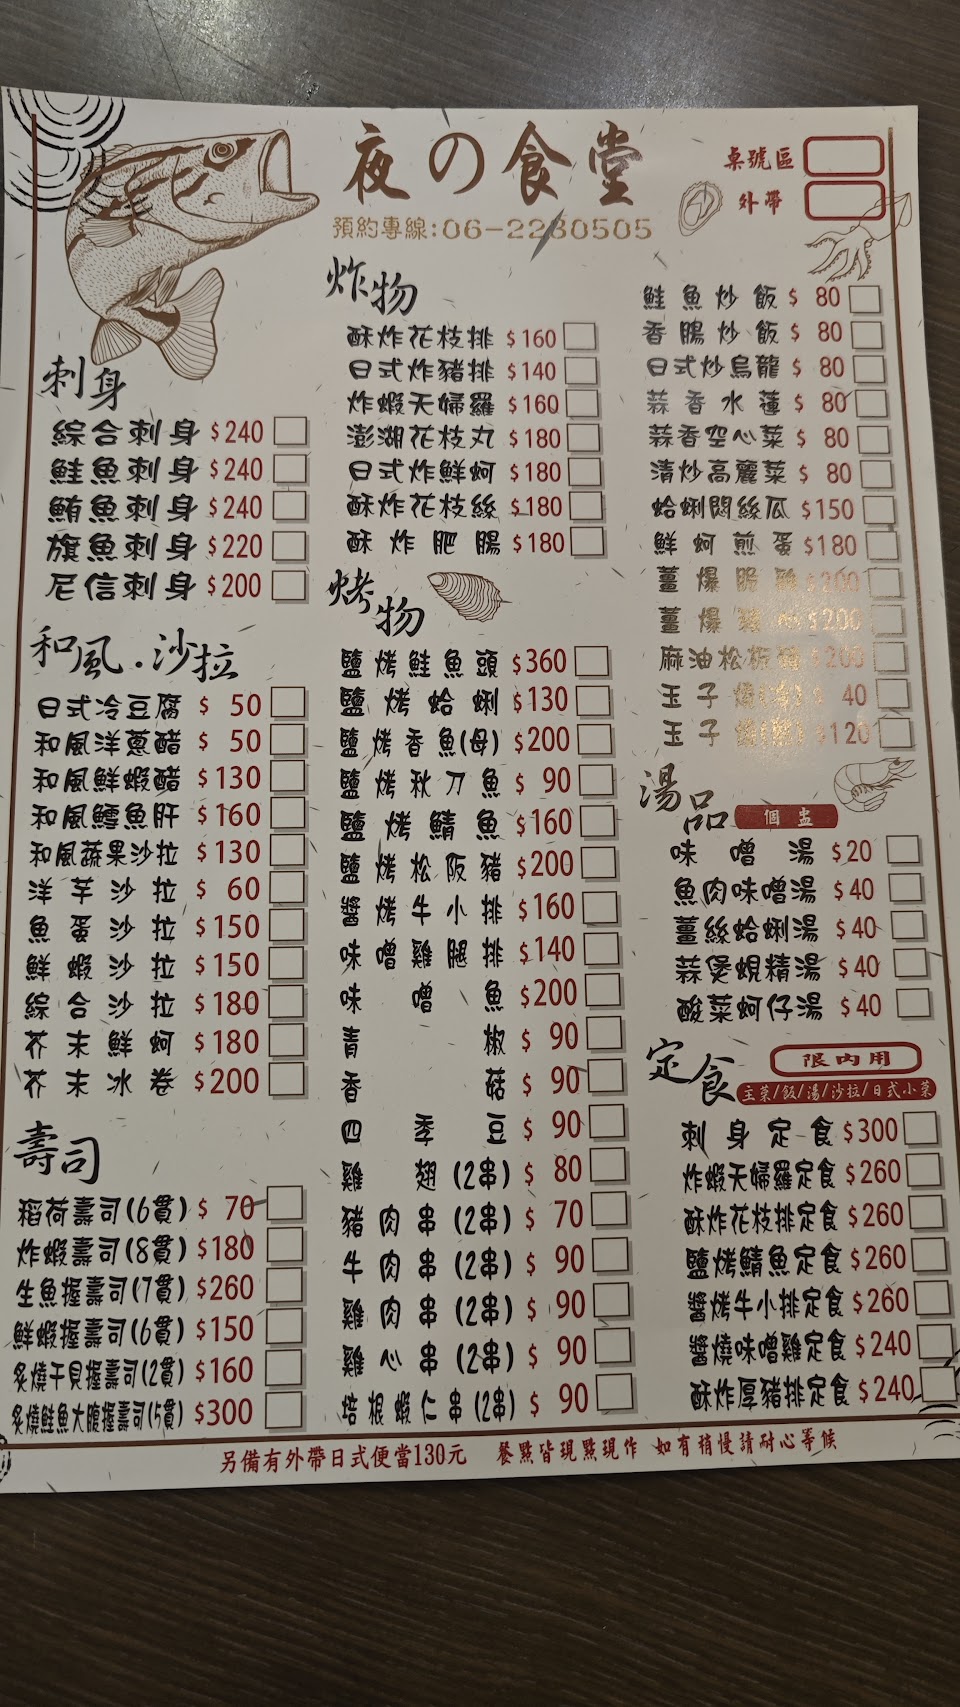 夜の食堂
預約專線:06-2230505
桌號區
外帶
刺身
綜合刺身 $240
鮭魚刺身 $240
鮪魚刺身 $240
旗魚刺身 $220
尼信刺身 $200
和風.沙拉
日式冷豆腐 $ 50
和風洋蔥醋 $ 50
和風鮮蝦醋 $130
和風鱈魚肝 $160
和風蔬果沙拉 $130
洋芋沙拉 $ 60
魚蛋沙拉 $150
鮮蝦沙拉 $150
綜合沙拉 $180
芥末鮮蚵 $180
芥末冰卷 $200
壽司
稻荷壽司(6貫) $ 70
炸蝦壽司(8貫) $180
生魚握壽司(7貫) $260
鮮蝦握壽司(6貫) $150
炙燒干貝握壽司(2貫) $160
炙燒鮭魚大腹握壽司(5貫) $300
炸物
酥炸花枝排 $160
日式炸豬排 $140
炸蝦天婦羅 $160
澎湖花枝丸 $180
日式炸鮮蚵 $180
酥炸花枝絲 $180
酥炸肥腸 $180
烤物
鹽烤鮭魚頭 $360
鹽烤蛤蜊 $130
鹽烤香魚(母) $200
鹽烤秋刀魚 $ 90
鹽烤鯖魚 $160
鹽烤松阪豬 $200
醬烤牛小排 $160
味噌雞腿排 $140
味噌魚 $200
青椒 $ 90
香菇 $ 90
四季豆 $ 90
雞翅(2串) $ 80
豬肉串(2串) $ 70
牛肉串(2串) $ 90
雞肉串(2串) $ 90
雞心串(2串) $ 90
培根蝦仁串(2串) $ 90
鮭魚炒飯 $ 80
香腸炒飯 $ 80
日式炒烏龍 $ 80
蒜香水蓮 $ 80
蒜香空心菜 $ 80
清炒高麗菜 $ 80
蛤蜊悶絲瓜 $150
鮮蚵煎蛋 $180
薑爆 $200
薑爆 $200
麻油松阪豬 $200
玉子燒 $ 40
玉子燒 $120
湯品
個盅
味噌湯 $20
魚肉味噌湯 $40
薑絲蛤蜊湯 $40
蒜煲蜆精湯 $40
酸菜蚵仔湯 $40
定食
限內用
主菜/飯/湯/沙拉/日式小菜
刺身定食 $300
炸蝦天婦羅定食 $260
酥炸花枝排定食 $260
鹽烤鯖魚定食 $260
醬烤牛小排定食 $260
醬燒味噌雞定食 $240
酥炸厚豬排定食 $240
另備有外帶日式便當130元 餐點皆現點現作 如有稍慢請耐心等候